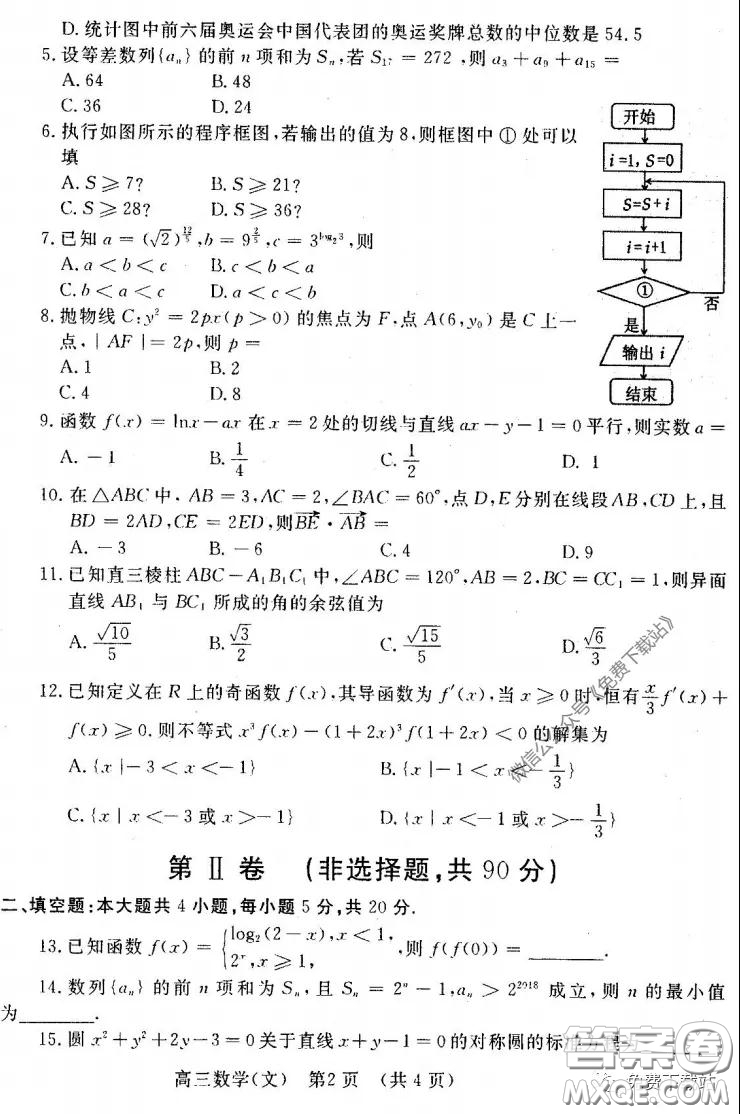 D. 统计图中前六届奥运会中国代表团的奥运奖牌总数的中位数是 54.5
5. 设等差数列{aₙ}的前 n 项和为 Sₙ,若 S₁₇ = 272 ,则 a₃ + a₉ + a₁₅ =
A. 64 B. 48
C. 36 D. 24
6. 执行如图所示的程序框图,若输出的值为 8,则框图中 ① 处可以
填
A. S ⩾ 7? B. S ⩾ 21?
C. S ⩾ 28? D. S ⩾ 36?
开始
i=1, S=0
S=S+i
i=i+1
①
否
是
输出 i
结束
7. 已知 a = (√2)^(12/5) ,b = 9^(2/5) ,c = 3^(log₂3) ,则
A. a < b < c B. c < b < a
C. b < a < c D. a < c < b
8. 抛物线 C:y² = 2px(p > 0) 的焦点为 F,点 A(6,y₀) 是 C 上一
点, | AF | = 2p,则 p =
A. 1 B. 2
C. 4 D. 8
9. 函数 f(x) = lnx − ax 在 x = 2 处的切线与直线 ax − y − 1 = 0 平行,则实数 a =
A. − 1 B. 1/4 C. 1/2 D. 1
10. 在 △ABC 中, AB = 3,AC = 2,∠BAC = 60°,点 D,E 分别在线段AB,CD 上,且
BD = 2AD,CE = 2ED,则BE→ · AB→ =
A. − 3 B. − 6 C. 4 D. 9
11. 已知直三棱柱 ABC − A₁B₁C₁ 中,∠ABC = 120°,AB = 2,BC = CC₁ = 1,则异面
直线 AB₁ 与 BC₁ 所成的角的余弦值为
A. √10/5 B. √3/2 C. √15/5 D. √6/3
12. 已知定义在 R 上的奇函数 f(x),其导函数为 f′(x),当 x ⩾ 0 时,恒有 x/3 f′(x) +
f(x) ⩾ 0. 则不等式 x³f(x) − (1 + 2x)³f(1 + 2x) < 0 的解集为
A. {x | − 3 < x < − 1} B. {x | − 1 < x < − 1/3}
C. {x | x < − 3 或 x > − 1} D. {x | x < − 1 或 x > − 1/3}
微信公众号《免费下载站》
第 Ⅱ 卷 (非选择题,共 90 分)
二、填空题:本大题共 4 小题,每小题 5 分,共 20 分.
13. 已知函数 f(x) = {log₂(2 − x),x < 1, 2ˣ,x ⩾ 1, 则 f(f(0)) = ________.
14. 数列{aₙ} 的前 n 项和为 Sₙ, 且 Sₙ = 2ⁿ − 1,aₙ > 2²⁰¹⁸ 成立,则 n 的最小值
为________.
15. 圆 x² + y² + 2y − 3 = 0 关于直线 x + y − 1 = 0 的对称圆的标
高三数学(文) 第 2 页 (共 4 页)
答案圈
MXQE.COM
免费下载站